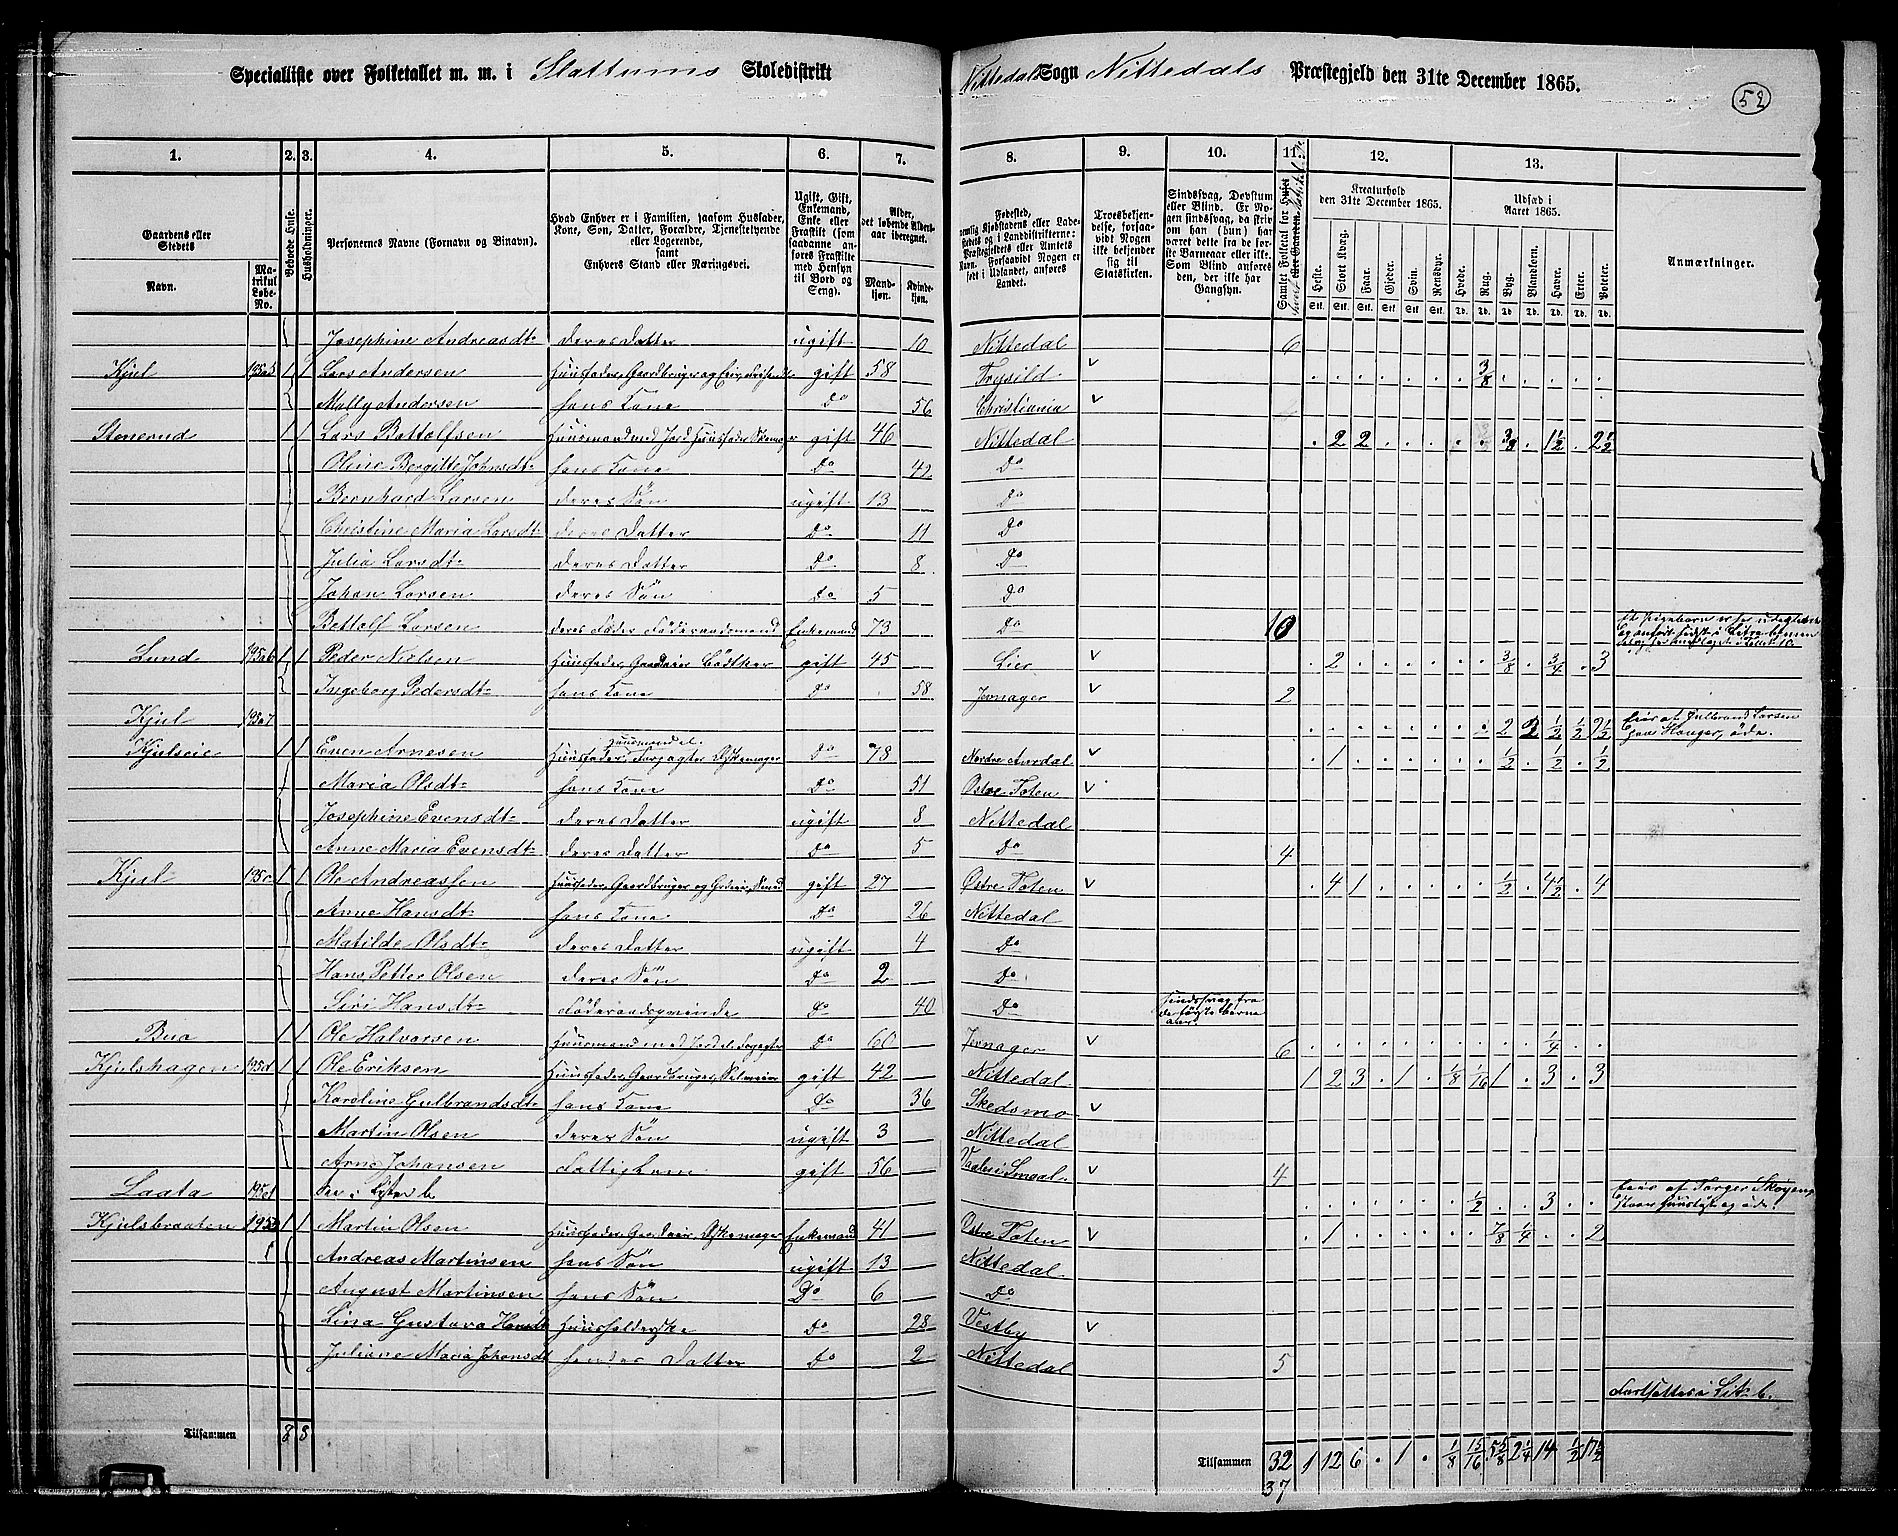 Specialliste over Folketallet m. m. i Slattums Skoledistrikt Nittedals Sogn Nittedals Præstegjeld den 31te December 1865.
52
1. 2. 3. 4. 5. 6. 7. 8. 9. 10. 11. 12. 13.
Gaardens eller Stedets Navn.
Matrikul Løbe-No.
Beboede Huse.
Husholdninger.
Personernes Navne (Fornavn og Binavn).
Hvad Enhver er i Familien, saasom Husfader, Kone, Søn, Datter, Forældre, Tjenestetyende eller Logerende, samt Enhvers Stand eller Næringsvei.
Ugift, Gift, Enkemand, Enke eller Fraskilt (som saadanne anføres Fraskilte med Hensyn til Bord og Seng).
Alder, det løbende Aldersaar iberegnet.
Mandkjøn. Kvindekjøn.
Fødested,
Troesbekjendelse, forsaavidt Nogen ikke bekjender sig til Statskirken.
Sindssvag, Døvstum eller Blind. Er Nogen sindssvag, da skrives om han (hun) har været dette fra de første Barneaar eller ikke. Som Blind anføres den, der ikke har Gangsyn.
Samlet Folketal for Huset
Kreaturhold den 31te December 1865.
Heste. Stort Kvæg. Faar. Gjeder. Svin. Rensdyr.
Udsæd i Aaret 1865.
Hvede. Rug. Byg. Blandkorn. Havre. Erter. Poteter.
Anmærkninger.
Josephine Andreasdt deres Datter ugift 10 Nittedal 6
Kjul 195a5 1 1 Lars Andersen gift 58 Trysild v 3/8
Mally Andersen hans Kone Do 56 Christiania v
Stenerud 1 1 Lars Bottolfsen Huusmand med Jord gift 46 Nittedal 2 2 3/8 1 1/2 2 1/2
Oline Bergitte Johnsdt hans Kone Do 42 Do
Bernhard Larsen deres Søn ugift 13 Do
Christine Maria Larsdt deres Datter Do 11 Do
Julia Larsdt deres Datter Do 8 Do
Johan Larsen deres Søn Do 5 Do
Bottolf Larsen deres Fader Føderaadsmand Enkemand 73 Do 10
Lund 195a6 1 1 Peder Nielsen Huusfader, Gaardeier Bødtker gift 45 Lier v 2 3/8 3/4 3
Ingeborg Pedersdt hans Kone Do 58 Jevnager v 2
Kjul 195a7 2 2 1/2 1/2 2 1/2 Eies af Gulbrand Larsen
Kjulseie 1 1 Even Arnesen Do 78 Nordre Aurdal v 1 1/2 1/2 1/2
Maria Olsdt hans Kone Do 51 Østre Toten v
Josephine Evensdt deres Datter ugift 8 Nittedal
Anne Maria Evensdt deres Datter Do 5 Do 4
Kjul 195c 1 1 Ole Andreassen gift 27 Østre Toten v 4 1 1/2 4 1/2 4
Anne Hansdt hans Kone Do 26 Nittedal
Matilde Olsdt deres Datter ugift 4 Do
Hans Petter Olsen deres Søn Do 2 Do
Siri Hansdt Føderaadsqvinde Do 40 Do Sindssvag fra de første Barneaar
Bua 1 1 Ole Halvorsen Do 60 Jevnager v 6 1/4
Kjulshagen 195d 1 1 Ole Eriksen gift 42 Nittedal 1 2 3 1 1/8 1/16 1 3 3
Karoline Gulbrandsdt hans Kone Do 36 Skedsmo v
Martin Olsen deres Søn ugift 3 Nittedal
Arne Johansen Fattiglem gift 56 Vaaler i Smaal. v 4
Laata 195e1 1/2 3 Eies af Torger Skøyen
Kjulsbraaten 195 1 1 Martin Olsen Enkemand 41 Østre Toten v 1 7/8 1/4 2
Andreas Martinsen hans Søn ugift 13 Nittedal
August Martinsen hans Søn Do 6 Do
Lina Gustava Hansdt Huusholderske Do 28 Vestby v
Juliane Maria Johansdt hendes Datter Do 2 Nittedal 5
Fortsættes i Litr b.
Tilsammen 8 8 Tilsammen 32 1 12 6 1 1/8 15/16 5 5/8 2 1/4 14 1/2 17 1/2
37